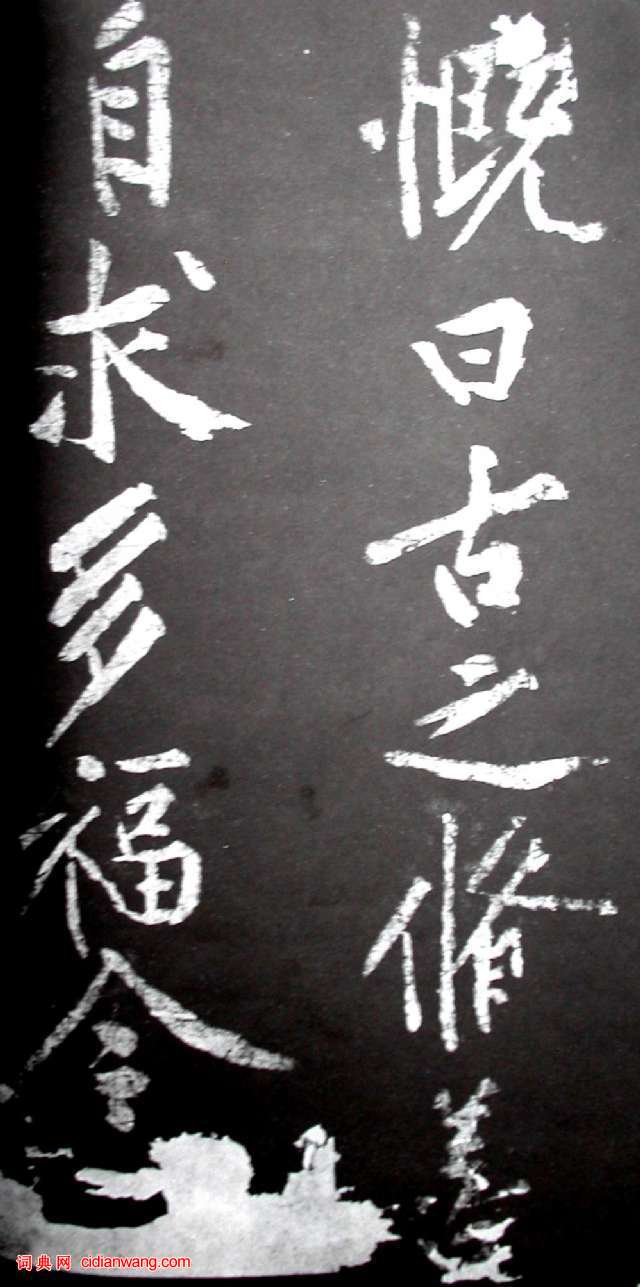 慨曰古之脩善
自求多福今
词典网 cidianwang.com